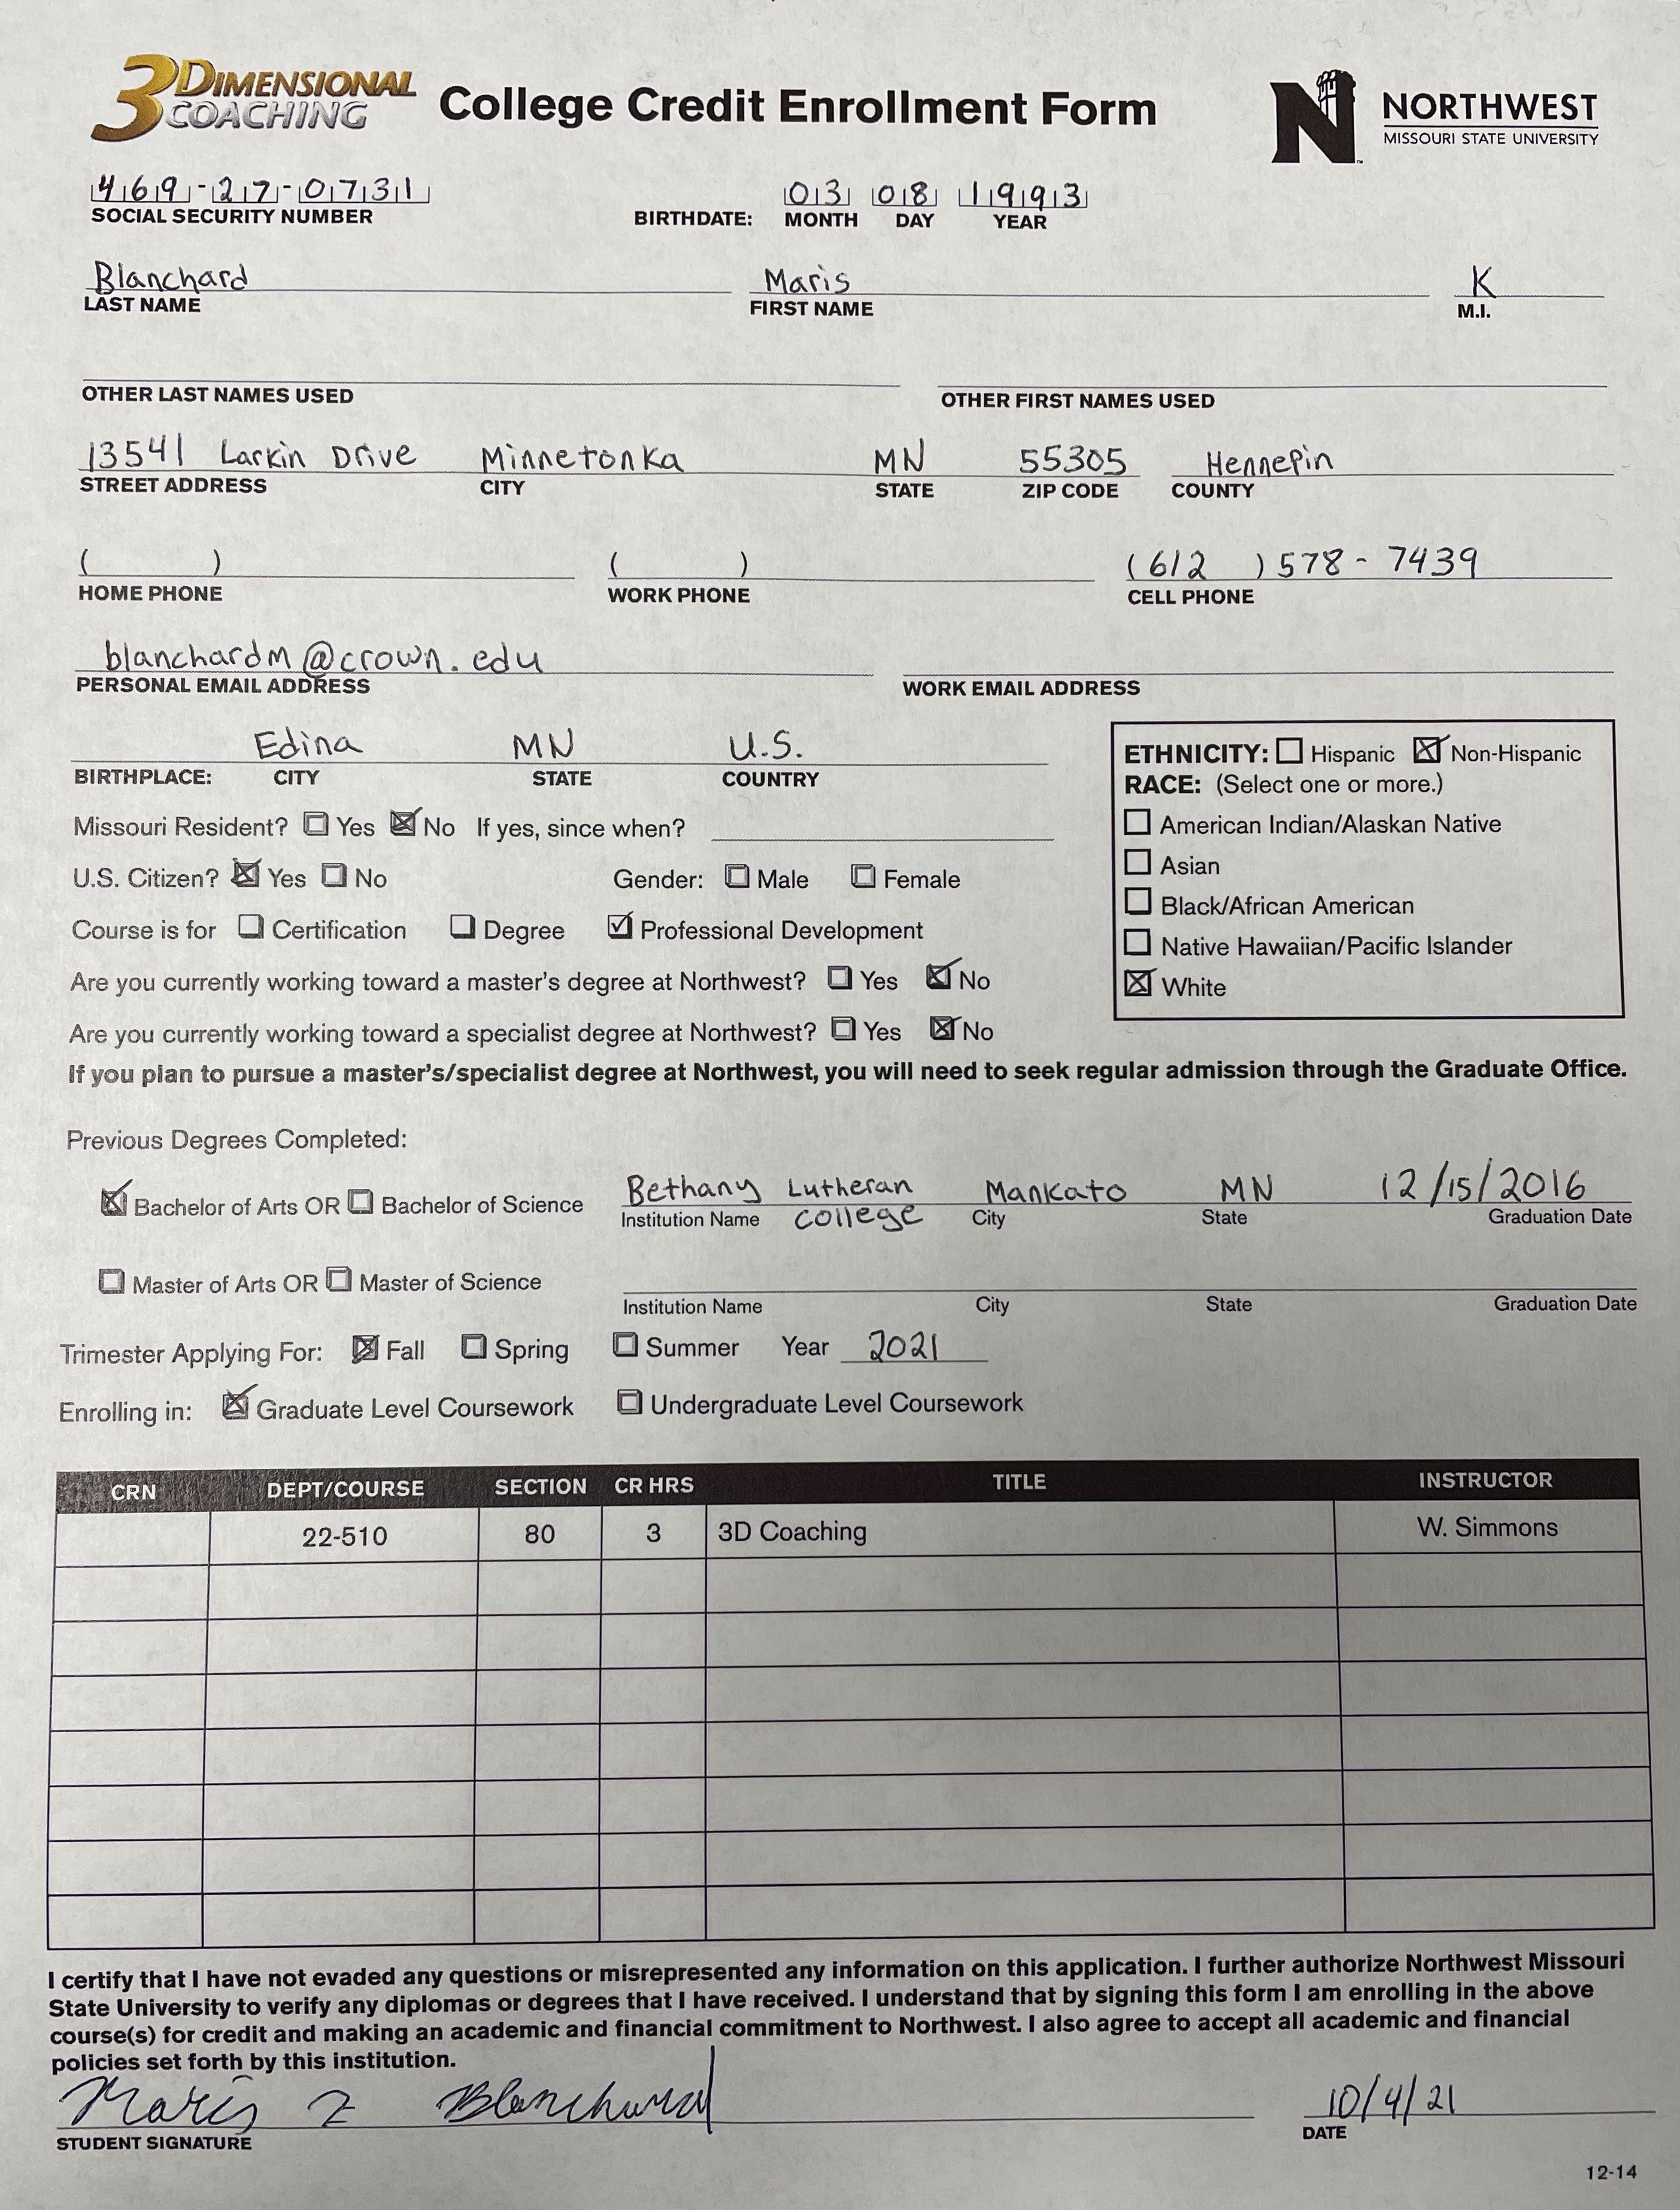 3 DIMENSIONAL COACHING College Credit Enrollment Form N NORTHWEST MISSOURI STATE UNIVERSITY
469-27-0731 03 08 1993
SOCIAL SECURITY NUMBER BIRTHDATE: MONTH DAY YEAR
Blanchard Maris K
LAST NAME FIRST NAME M.I.
OTHER LAST NAMES USED OTHER FIRST NAMES USED
13541 Larkin Drive Minnetonka MN 55305 Hennepin
STREET ADDRESS CITY STATE ZIP CODE COUNTY
( ) ( ) (612 ) 578-7439
HOME PHONE WORK PHONE CELL PHONE
blanchardm@crown.edu
PERSONAL EMAIL ADDRESS WORK EMAIL ADDRESS
Edina MN U.S.
BIRTHPLACE: CITY STATE COUNTRY
ETHNICITY: Hispanic Non-Hispanic
RACE: (Select one or more.)
American Indian/Alaskan Native
Asian
Black/African American
Native Hawaiian/Pacific Islander
White
Missouri Resident? Yes No If yes, since when?
U.S. Citizen? Yes No Gender: Male Female
Course is for Certification Degree Professional Development
Are you currently working toward a master's degree at Northwest? Yes No
Are you currently working toward a specialist degree at Northwest? Yes No
If you plan to pursue a master's/specialist degree at Northwest, you will need to seek regular admission through the Graduate Office.
Previous Degrees Completed:
Bachelor of Arts OR Bachelor of Science Bethany Lutheran Mankato MN 12/15/2016
Institution Name college City State Graduation Date
Master of Arts OR Master of Science
Institution Name City State Graduation Date
Trimester Applying For: Fall Spring Summer Year 2021
Enrolling in: Graduate Level Coursework Undergraduate Level Coursework
CRN DEPT/COURSE SECTION CR HRS TITLE INSTRUCTOR
22-510 80 3 3D Coaching W. Simmons
I certify that I have not evaded any questions or misrepresented any information on this application. I further authorize Northwest Missouri
State University to verify any diplomas or degrees that I have received. I understand that by signing this form I am enrolling in the above
course(s) for credit and making an academic and financial commitment to Northwest. I also agree to accept all academic and financial
policies set forth by this institution.
Maris Blanchard 10/4/21
STUDENT SIGNATURE DATE
12-14